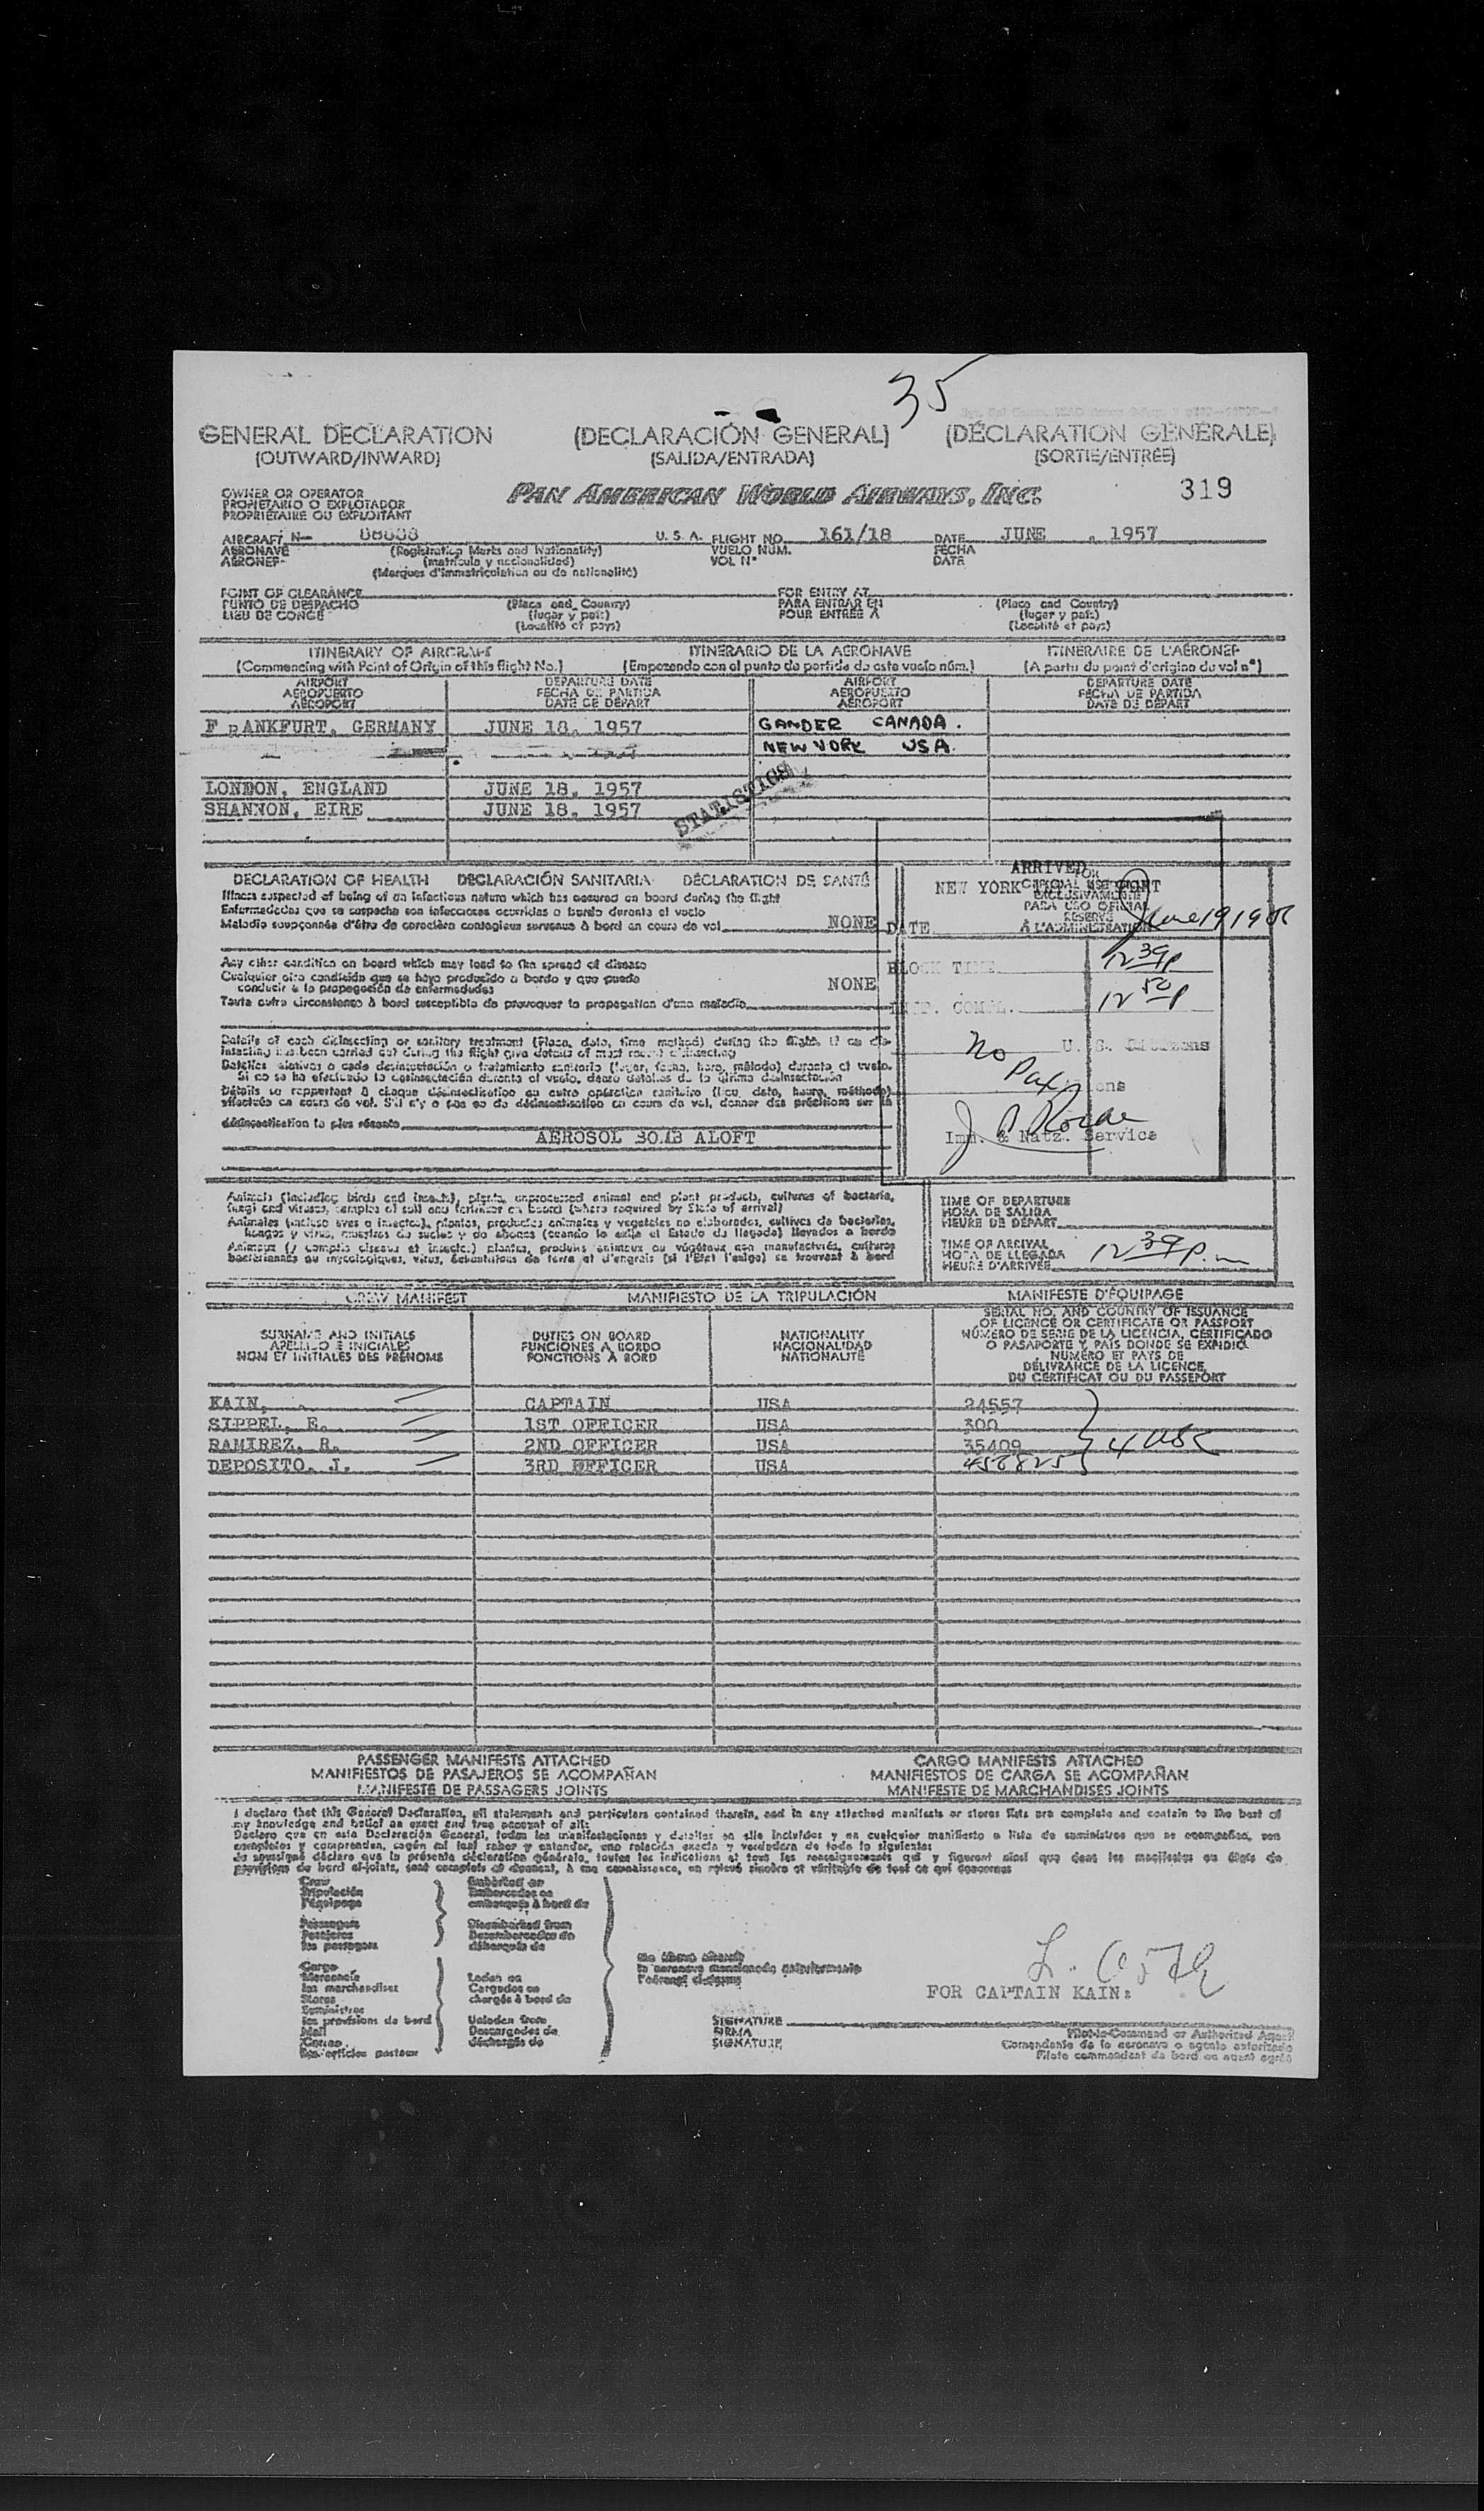 35
GENERAL DECLARATION (DECLARACIÓN GENERAL) (DÉCLARATION GÉNÉRALE)
(OUTWARD/INWARD) (SALIDA/ENTRADA) (SORTIE/ENTRÉE)
OWNER OR OPERATOR
PROPIETARIO O EXPLOTADOR
PROPRIÉTAIRE OU EXPLOITANT
PAN AMERICAN WORLD AIRWAYS, INC. 319
AIRCRAFT N- U. S. A. FLIGHT NO. 161/18 DATE JUNE , 1957
AERONAVE (Registration Marks and Nationality) VUELO NÚM. FECHA
AÉRONEF (matrícula y nacionalidad) VOL Nº DATE
(Marques d'immatriculation ou de nationalité)
POINT OF CLEARANCE FOR ENTRY AT
PUNTO DE DESPACHO (Place and Country) PARA ENTRAR EN (Place and Country)
LIEU DE CONGÉ (lugar y país) POUR ENTRÉE À (lugar y país)
(Localité et pays) (Localité et pays)
ITINERARY OF AIRCRAFT ITINERARIO DE LA AERONAVE ITINÉRAIRE DE L'AÉRONEF
(Commencing with Point of Origin of this flight No.) (Empezando con el punto de partida de este vuelo núm.) (A partir du point d'origine du vol nº)
AIRPORT DEPARTURE DATE AIRPORT DEPARTURE DATE
AEROPUERTO FECHA DE PARTIDA AEROPUERTO FECHA DE PARTIDA
AÉROPORT DATE DE DÉPART AÉROPORT DATE DE DÉPART
FRANKFURT, GERMANY JUNE 18, 1957 GANDER CANADA.
NEW YORK USA.
LONDON, ENGLAND JUNE 18, 1957
SHANNON, EIRE JUNE 18, 1957
STATISTICS
ARRIVED
DECLARATION OF HEALTH DECLARACIÓN SANITARIA DÉCLARATION DE SANTÉ
FOR
NEW YORK OFFICIAL USE ONLY PORT
EXCLUSIVAMENTE
PARA USO OFICIAL
RÉSERVÉ
À L'ADMINISTRATION
Illness suspected of being of an infectious nature which has occured on board during the flight
Enfermedades que se sospecha son infecciosas ocurridas a bordo durante el vuelo
Maladie soupçonnée d'être de caractère contagieux survenue à bord en cours de vol NONE
DATE June 19 19
Any other condition on board which may lead to the spread of disease
Cualquier otra condición que se haya producido a bordo y que pueda
conducir a la propagación de enfermedades NONE
Toute autre circonstance à bord susceptible de provoquer la propagation d'une maladie
BLOCK TIME 12 39 P
INSP. COMPL. 12 50 P
Details of each disinsecting or sanitary treatment (Place, date, time method) during the flight. If no dis-
insecting has been carried out during the flight give details of most recent disinsecting
Detalles relativos a cada desinsectación o tratamiento sanitario (lugar, fecha, hora, método) durante el vuelo.
Si no se ha efectuado la desinsectación durante el vuelo, dense detalles de la última desinsectación
Détails se rapportant à chaque désinsectisation ou autre opération sanitaire (lieu, date, heure, méthode)
effectués en cours de vol. S'il n'y a pas eu de désinsectisation en cours de vol, donner des précisions sur la
désinsectisation la plus récente
AEROSOL BOMB ALOFT
No U. S. Citizens
Pax
Imm. & Natz. Service
Animals (including birds and insects), plants, unprocessed animal and plant products, cultures of bacteria,
fungi and viruses, samples of soil and fertilizer on board (where required by State of arrival)
Animales (incluso aves o insectos), plantas, productos animales y vegetales no elaborados, cultivos de bacterias,
hongos y virus, muestras de suelos y de abonos (cuando lo exija el Estado de llegada) llevados a bordo
Animaux (y compris oiseaux et insectes) plantes, produits animaux ou végétaux non manufacturés, cultures
bactériennes ou mycologiques, virus, échantillons de terre et d'engrais (si l'État l'exige) se trouvant à bord
TIME OF DEPARTURE
HORA DE SALIDA
HEURE DE DÉPART
TIME OF ARRIVAL
HORA DE LLEGADA
HEURE D'ARRIVÉE 12 39 P.m
CREW MANIFEST MANIFIESTO DE LA TRIPULACIÓN MANIFESTE D'ÉQUIPAGE
SURNAME AND INITIALS
APELLIDO E INICIALES
NOM ET INITIALES DES PRÉNOMS
DUTIES ON BOARD
FUNCIONES A BORDO
FONCTIONS À BORD
NATIONALITY
NACIONALIDAD
NATIONALITÉ
SERIAL NO. AND COUNTRY OF ISSUANCE
OF LICENCE OR CERTIFICATE OR PASSPORT
NÚMERO DE SERIE DE LA LICENCIA, CERTIFICADO
O PASAPORTE Y PAÍS DONDE SE EXPIDIÓ
NUMÉRO ET PAYS DE
DÉLIVRANCE DE LA LICENCE,
DU CERTIFICAT OU DU PASSEPORT
KAIN, CAPTAIN USA 24557
SIPPEL, E. 1ST OFFICER USA 300
RAMIREZ, R. 2ND OFFICER USA 35409 4 USC
DEPOSITO, J. 3RD OFFICER USA 458825
PASSENGER MANIFESTS ATTACHED CARGO MANIFESTS ATTACHED
MANIFIESTOS DE PASAJEROS SE ACOMPAÑAN MANIFIESTOS DE CARGA SE ACOMPAÑAN
MANIFESTE DE PASSAGERS JOINTS MANIFESTE DE MARCHANDISES JOINTS
I declare that this General Declaration, all statements and particulars contained therein, and in any attached manifests or stores lists are complete and contain to the best of
my knowledge and belief an exact and true account of all:
Declaro que en esta Declaración General, todas las manifestaciones y detalles en ella incluídos y en cualquier manifiesto o lista de suministros que se acompañan, son
completos y comprenden, según mi leal saber y entender, una relación exacta y verdadera de todo lo siguiente:
Je soussigné déclare que la présente déclaration générale, toutes les indications et tous les renseignements qui y figurent ainsi que dans les manifestes ou états de
provisions de bord ci-joints, sont complets et donnent, à ma connaissance, un relevé sincère et véritable de tout ce qui concerne
Crew
Tripulación
l'équipage
Passengers
Pasajeros
les passagers
Embarked on
Embarcados en
embarqués à bord de
Disembarked from
Desembarcados de
débarqués de
Cargo
Mercancía
les marchandises
Stores
Suministros
les provisions de bord
Mail
Correo
les articles postaux
Laden on
Cargados en
chargés à bord de
Unladen from
Descargados de
déchargés de
the above aircraft
la aeronave mencionada anteriormente
l'aéronef ci-dessus
FOR CAPTAIN KAIN:
SIGNATURE
FIRMA
SIGNATURE
Pilot-in-Command or Authorized Agent
Comandante de la aeronave o agente autorizado
Pilote commandant de bord ou agent agréé